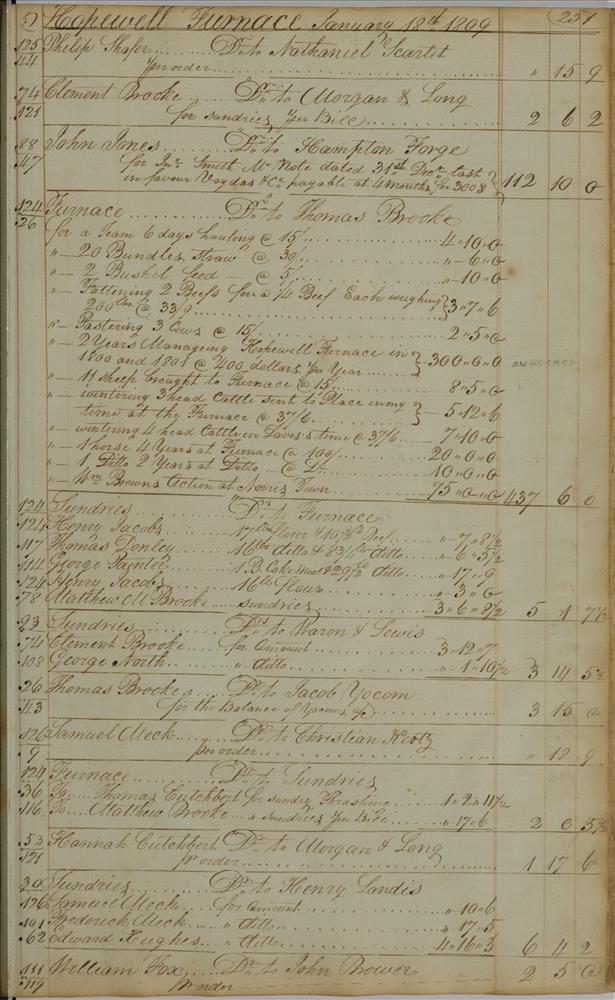 Hopewell Furnace January 18th 1809 251
125 Philip Shafer Dr. to Nathaniel Scarlet
44 per order " 15 9
74 Clement Brooke Dr. to Morgan & Long
121 for sundries per Bill 2 6 2
88 John Jones Dr. to Hampton Forge
47 for Jno. Smith Mc Note dated 31st Decr. last
in favour Voydas & Co. payable at 4 months for 300$ } 112 10 0
124 Furnace Dr. to Thomas Brooke
26 for a Team 6 days hauling @ 15/ 4"10"0
"— 20 Bundles straw @ 30/ "—6"0
"— 2 Bushel seed — @ 5/ "—10"0
"— Fattening 2 Beefs for a 1/4 Beef Each weighing
200 lbs @ 33/9 } 3"7"6
"— Pastering 3 Cows @ 15/ 2"5"0
"— 2 Years Manageing Hopewell Furnace in
1800 and 1801 @ 400 dollars per Year } 300"0"0
"— 11 sheep brought to Furnace @ 15/ 8"5"0
"— wintering 3 head Cattle sent to Place in my
time at the Furnace @ 37/6 } — 5"12"6
"— wintering 4 head Cattle in Daves's time @ 37/6 7"10"0
"— 1 horse 4 Years at Furnace @ 100/ 20"0"0
"— 1 Ditto 2 Years at Ditto — @ Do. 10"0"0
"— Wm. Browns Action at Noris Town 75"0"0 437 6 0
124 Sundries Drs. to Furnace
124 Henry Jacobs 17 lbs flour & 10 1/2 lb Beef "—7"8 1/2
117 Thomas Donley 16 lbs ditto & 8 3/4 lb ditto "—6"5 1/2
114 George Painter 1 B. Cake Meal & 29 1/2 lb ditto "—17"9
124 Henry Jacobs 16 lb flour "—3"0
78 Matthew M Brooke sundries 3"6"8 1/2 5 1 7 1/2
93 Sundries Dr. to Waron & Lewis
74 Clement Brooke for Amount 3"12"7
108 George North " ditto "—1"10 1/2 3 14 5 1/2
26 Thomas Brooke Dr. to Jacob Yocom
113 for the Balance of Yocoms a/c 3 15 0
126 Samuel Meck Dr. to Christian Kertz
9 per order " 18 9
124 Furnace Dr. to Sundries
36 To Thomas Cutchbert for sundry Thrashing 1"2"11 1/2
116 To Matthew Brooke " sundries per Bill "—17"6 2 0 5 1/2
53 Hannah Cutchbert Dr. to Morgan & Long
121 pr order 1 17 6
39 Sundries Drs. to Henry Landis
126 Samuel Meck for Amount "—10"6
101 Frederick Meck " ditto "—17"5
62 Edward Hughes " ditto 4"16"3 6 4 2
111 William Fox Dr. to John Brower 2 5 0
119 pr order